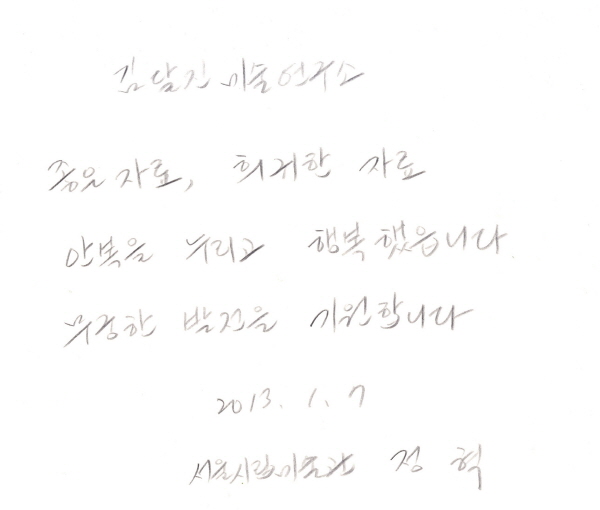 김달진미술연구소
좋은 자료, 희귀한 자료
안복을 누리고 행복했습니다
무궁한 발전을 기원합니다
2013. 1. 7
서울시립미술관 정 혁